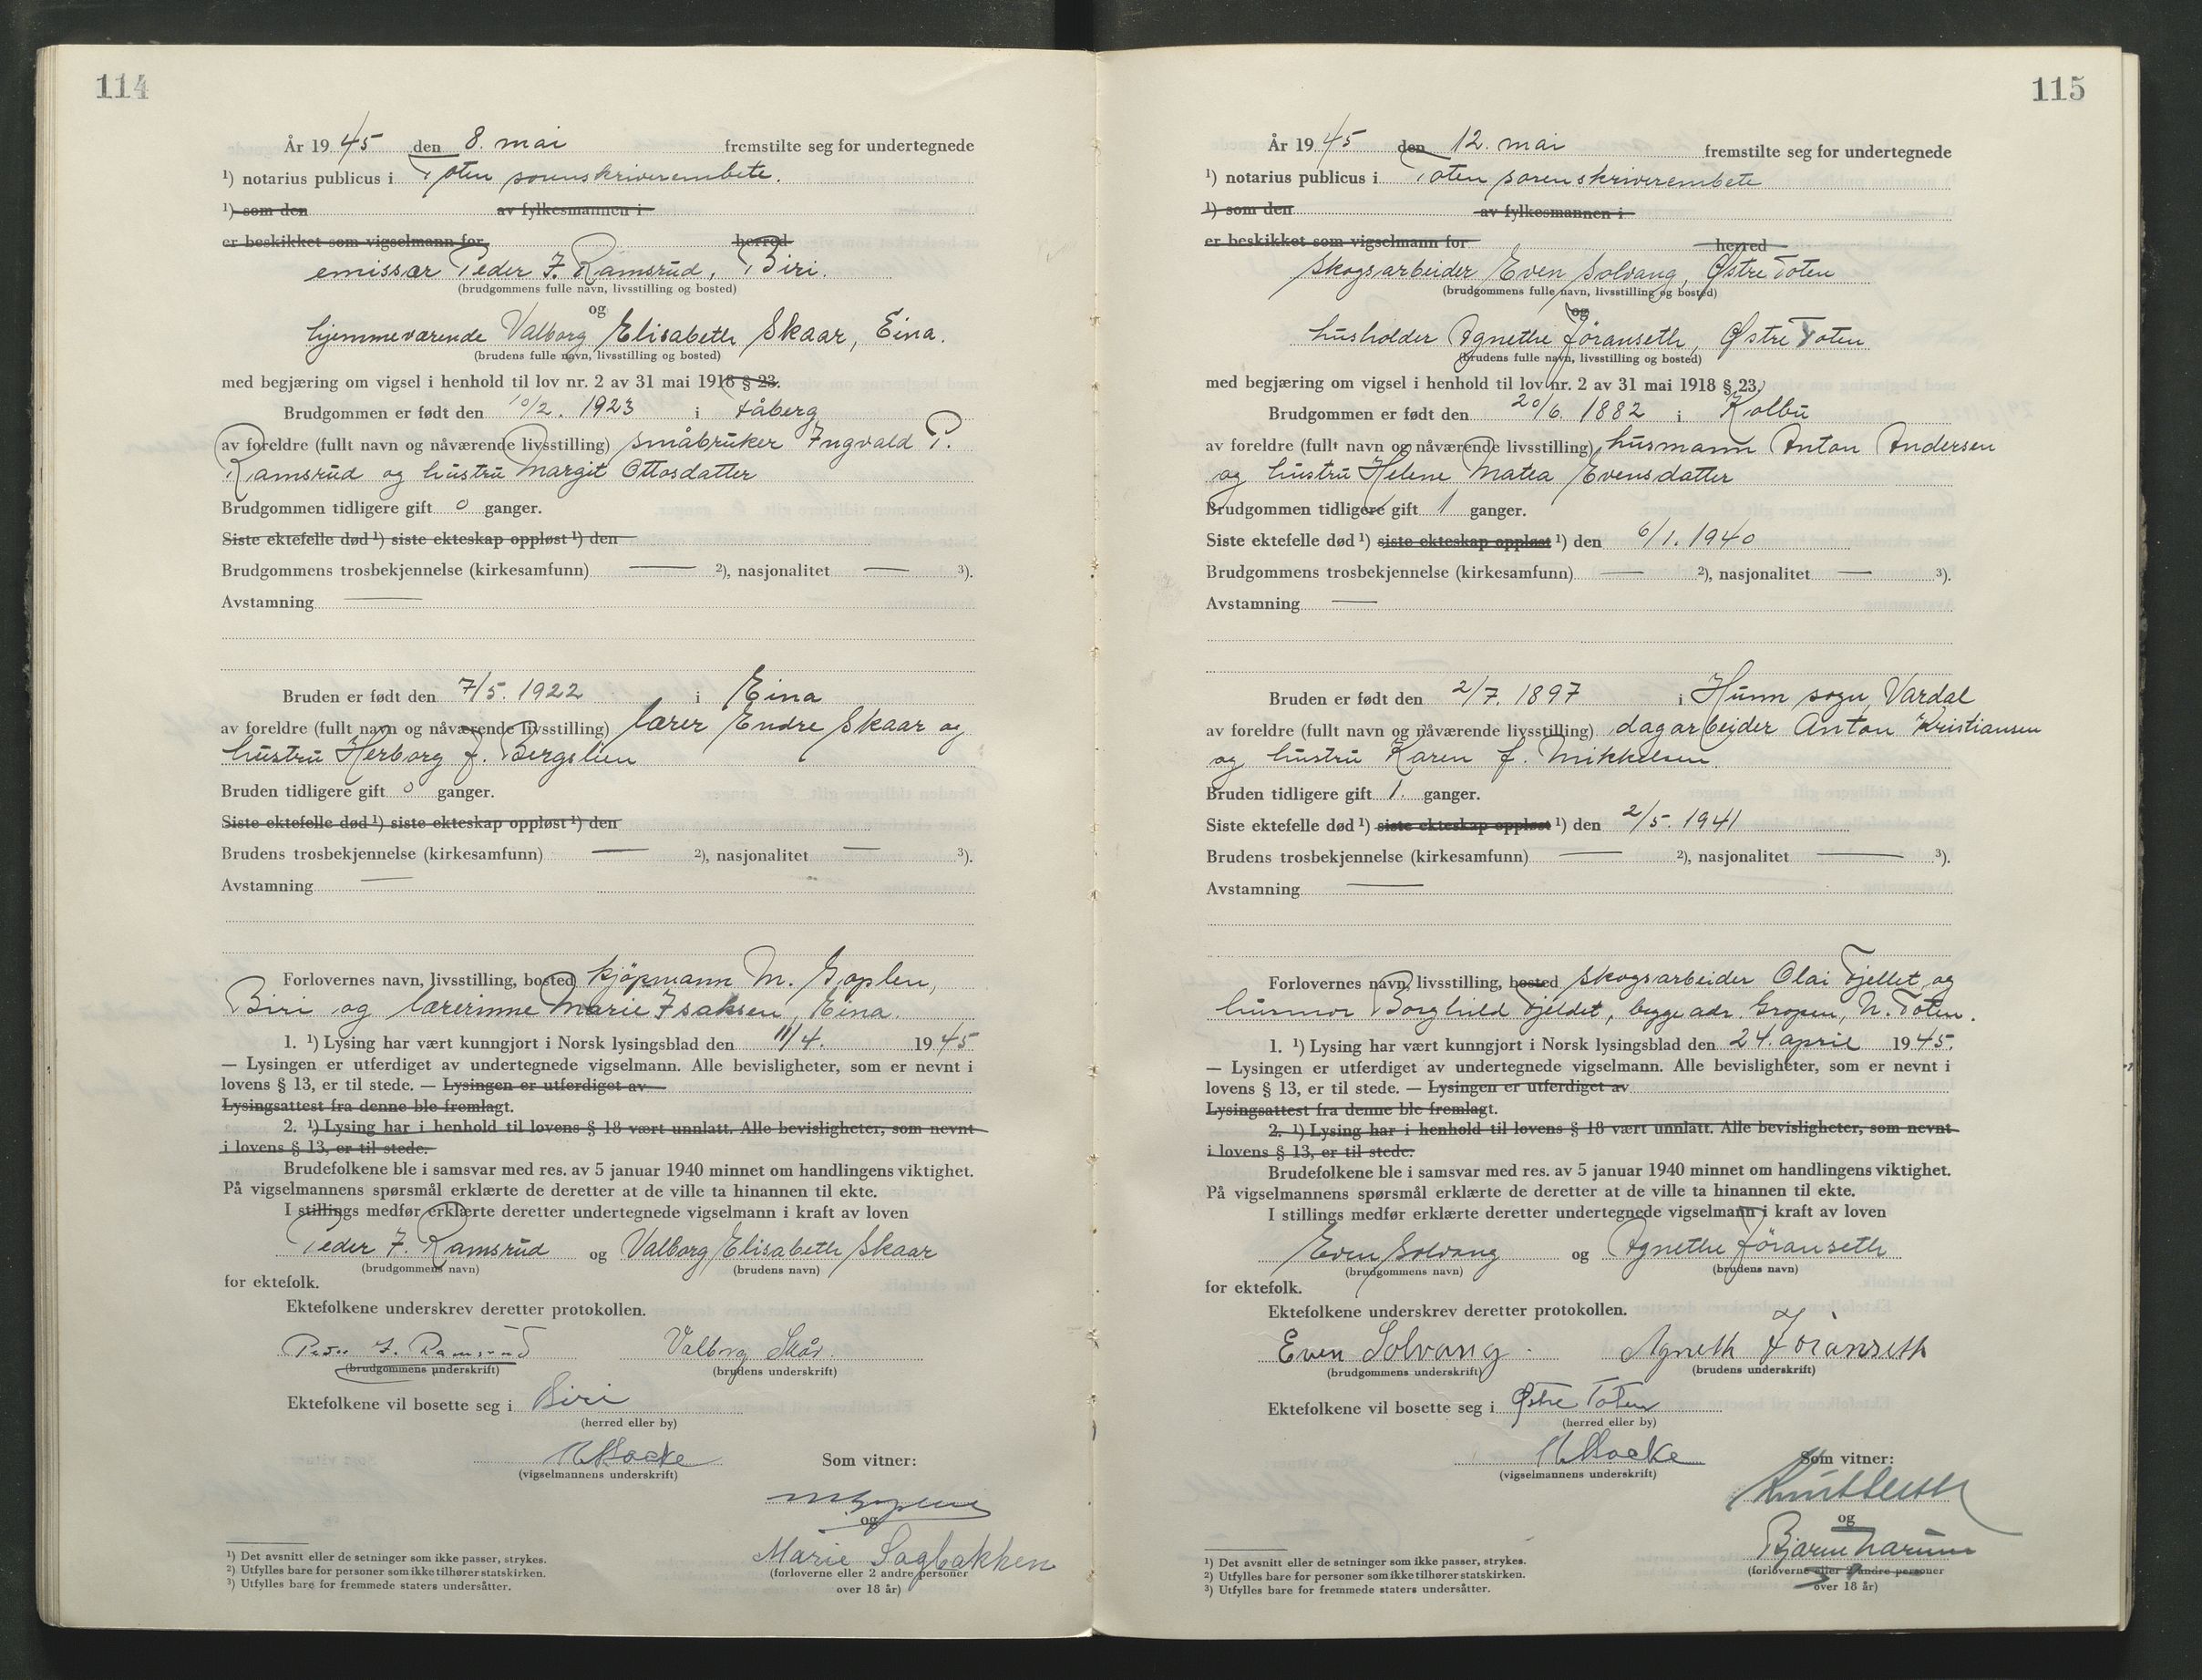 114
År 1945 den 8. mai fremstilte seg for undertegnede
¹) notarius publicus i Toten sorenskriverembete.
¹) som den av fylkesmannen i
er beskikket som vigselmann for herred
emissær Peder I. Ramsrud, Biri.
(brudgommens fulle navn, livsstilling og bosted)
og
hjemmeværende Valborg Elisabeth Skaar, Eina.
(brudens fulle navn, livsstilling og bosted)
med begjæring om vigsel i henhold til lov nr. 2 av 31 mai 1918 § 23.
Brudgommen er født den 10/2. 1923 i Fåberg
av foreldre (fullt navn og nåværende livsstilling) småbruker Ingvald P.
Ramsrud og hustru Margit Ottosdatter
Brudgommen tidligere gift 0 ganger.
Siste ektefelle død ¹) siste ekteskap oppløst ¹) den
Brudgommens trosbekjennelse (kirkesamfunn) — ²), nasjonalitet — ³).
Avstamning —
Bruden er født den 7/5. 1922 i Eina
av foreldre (fullt navn og nåværende livsstilling) lærer Endre Skaar og
hustru Herborg f. Bergslien
Bruden tidligere gift 0 ganger.
Siste ektefelle død ¹) siste ekteskap oppløst ¹) den
Brudens trosbekjennelse (kirkesamfunn) — ²), nasjonalitet — ³).
Avstamning —
Forlovernes navn, livsstilling, bosted kjöpmann M. Goplen,
Biri og lærerinne Marie Isaksen, Eina.
1. ¹) Lysing har vært kunngjort i Norsk lysingsblad den 11/4. 1945
— Lysingen er utferdiget av undertegnede vigselmann. Alle bevisligheter, som er nevnt i
lovens § 13, er til stede. — Lysingen er utferdiget av
Lysingsattest fra denne ble fremlagt.
2. ¹) Lysing har i henhold til lovens § 18 vært unnlatt. Alle bevisligheter, som nevnt
i lovens § 13, er til stede.
Brudefolkene ble i samsvar med res. av 5 januar 1940 minnet om handlingens viktighet.
På vigselmannens spørsmål erklærte de deretter at de ville ta hinannen til ekte.
I stillings medfør erklærte deretter undertegnede vigselmann i kraft av loven
Peder I. Ramsrud og Valborg Elisabeth Skaar
(brudgommens navn) (brudens navn)
for ektefolk.
Ektefolkene underskrev deretter protokollen.
Peder I. Ramsrud Valborg Skår.
(brudgommens underskrift) (brudens underskrift)
Ektefolkene vil bosette seg i Biri
(herred eller by)
(vigselmannens underskrift) Som vitner:
og
Marie Sagbakken
(forloverne eller 2 andre personer
over 18 år)
¹) Det avsnitt eller de setninger som ikke passer, strykes.
²) Utfylles bare for personer som ikke tilhører statskirken.
³) Utfylles bare for fremmede staters undersåtter.
115
År 1945 den 12. mai fremstilte seg for undertegnede
¹) notarius publicus i Toten sorenskriverembete
¹) som den av fylkesmannen i
er beskikket som vigselmann for herred
skogsarbeider Even Solvang, Østre Toten
(brudgommens fulle navn, livsstilling og bosted)
og
husholder Agnethe Jöranseth, Østre Toten
(brudens fulle navn, livsstilling og bosted)
med begjæring om vigsel i henhold til lov nr. 2 av 31 mai 1918 § 23.
Brudgommen er født den 20/6. 1882 i Kolbu
av foreldre (fullt navn og nåværende livsstilling) husmann Anton Andersen
og hustru Helene Matea Evensdatter
Brudgommen tidligere gift 1 ganger.
Siste ektefelle død ¹) siste ekteskap oppløst ¹) den 6/1. 1940
Brudgommens trosbekjennelse (kirkesamfunn) — ²), nasjonalitet — ³).
Avstamning —
Bruden er født den 2/7. 1897 i Hunn sogn, Vardal
av foreldre (fullt navn og nåværende livsstilling) dagarbeider Anton Kristiansen
og hustru Karen f. Mikkelsen.
Bruden tidligere gift 1. ganger.
Siste ektefelle død ¹) siste ekteskap oppløst ¹) den 2/5. 1941
Brudens trosbekjennelse (kirkesamfunn) — ²), nasjonalitet — ³).
Avstamning —
Forlovernes navn, livsstilling, bosted skogsarbeider Olai Fjellet og
husmor Borghild Fjeldet, begge adr. Gropen, N. Toten.
1. ¹) Lysing har vært kunngjort i Norsk lysingsblad den 24. april 1945.
— Lysingen er utferdiget av undertegnede vigselmann. Alle bevisligheter, som er nevnt i
lovens § 13, er til stede. — Lysingen er utferdiget av
Lysingsattest fra denne ble fremlagt.
2. ¹) Lysing har i henhold til lovens § 18 vært unnlatt. Alle bevisligheter, som nevnt
i lovens § 13, er til stede.
Brudefolkene ble i samsvar med res. av 5 januar 1940 minnet om handlingens viktighet.
På vigselmannens spørsmål erklærte de deretter at de ville ta hinannen til ekte.
I stillings medfør erklærte deretter undertegnede vigselmann i kraft av loven
Even Solvang og Agnethe Jöranseth
(brudgommens navn) (brudens navn)
for ektefolk.
Ektefolkene underskrev deretter protokollen.
Even Solvang. Agneth Jöranseth
(brudgommens underskrift) (brudens underskrift)
Ektefolkene vil bosette seg i Østre Toten
(herred eller by)
(vigselmannens underskrift) Som vitner:
og
Bjarne Narum
(forloverne eller 2 andre personer
over 18 år)
¹) Det avsnitt eller de setninger som ikke passer, strykes.
²) Utfylles bare for personer som ikke tilhører statskirken.
³) Utfylles bare for fremmede staters undersåtter.